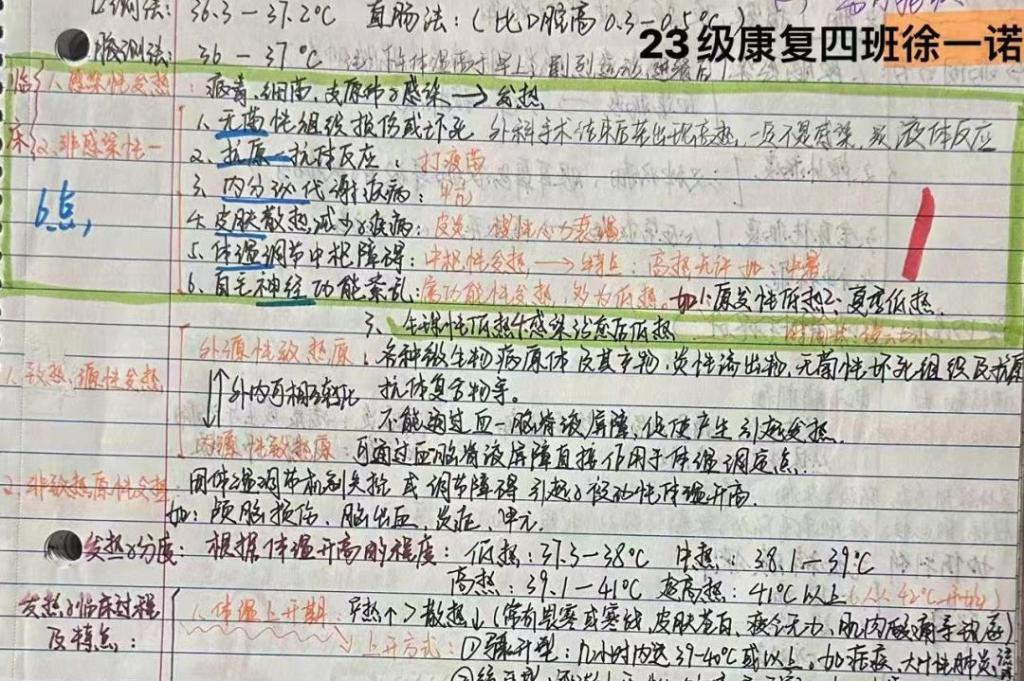 口测法: 36.3—37.2℃ 直肠法:(比口腔高0.3—0.5℃)
腋测法: 36—37℃
23级康复四班徐一诺
临床
1. 感染性发热: 病毒、细菌、支原体的感染→发热
2. 非感染性一
6点,
1. 无菌性组织损伤或坏死 外科手术
2. 抗原—抗体反应: 打疫苗
3. 内分泌代谢疾病: 甲亢
4. 皮肤散热减少的疾病: 皮炎 慢性心力衰竭
5. 体温调节中枢障碍: 中枢性发热,→特点: 高热无汗 如: 中暑
6. 自主神经功能紊乱: 属功能性发热, 多为低热. 如1.原发性低热2.夏季低热.
3、生理性低热4感染治愈后低热
1. 致热源性发热
外源性致热原: 各种微生物病原体及其产物,炎性渗出物,无菌性坏死组织及抗原
外内互相转化 抗体复合物等。
不能通过血—脑脊液屏障, 促使产生引起发热.
内源性致热原: 可通过血脑脊液屏障直接作用于体温调定点.
2. 非致热原性发热 因体温调节机制失控 或 调节障碍 引起的 性体温升高.
如: 颅脑损伤、脑出血、炎症、甲亢.
发热的分度: 根据体温升高的程度: 低热: 37.3—38℃ 中热: 38.1—39℃
高热: 39.1—41℃ 超高热: 41℃以上
发热的临床过程及特点:
1. 体温上升期: 产热↑>散热↓(常有畏寒或寒战,皮肤苍白、疲乏无力、肌肉酸痛等表现)
上升方式: ①骤升型: 几小时内达39-40℃或以上, 如疟疾、大叶性肺炎